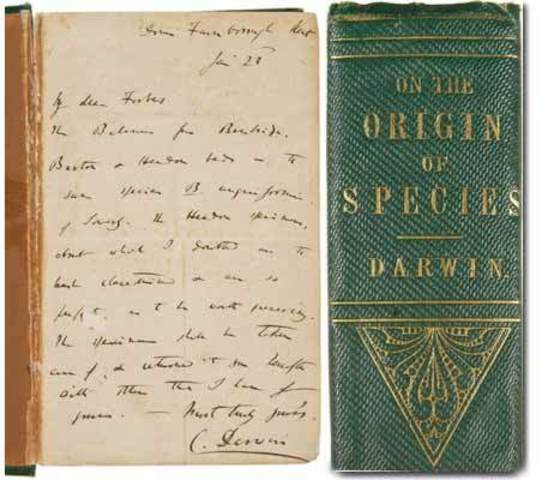 Down Farnborough Kent
Jan 28
My dear Forbes
The Balanus from Bembridge,
Barton & Headon beds is the
same species B. unguiformis
of Sowerby. The Headon specimens,
about which I doubted are the
best characterised & are so
perfect, as to be worth preserving.
The specimens shall be taken
care of, & returned to you
with others that I have of
yours. — Most truly yours.
C. Darwin
ON THE
ORIGIN
OF
SPECIES
DARWIN.